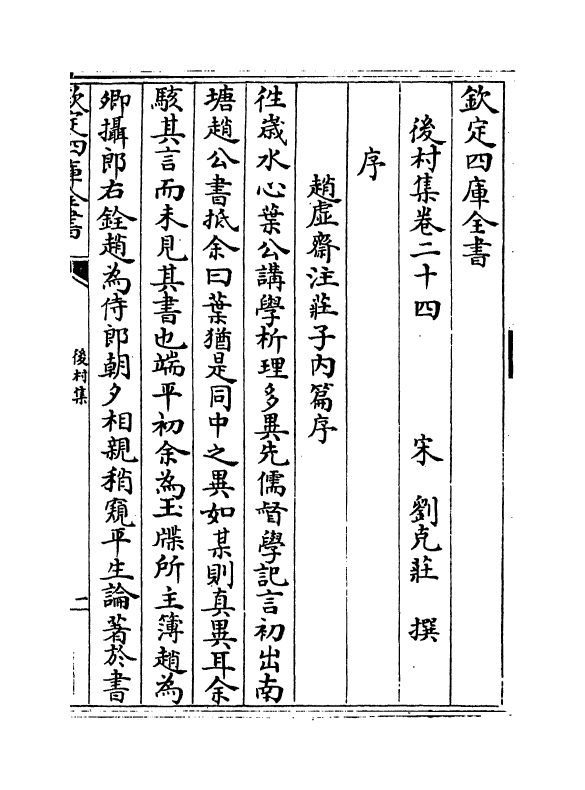 欽定四庫全書
後村集卷二十四　宋　劉克莊　撰
序
趙虛齋注莊子内篇序
徃歲水心葉公講學析理多異先儒習學記言初出南
塘趙公書抵余曰葉猶是同中之異如某則真異耳余
駭其言而未見其書也端平初余為玉牒所主簿趙為
卿攝郎右銓趙為侍郎朝夕相親稍窺平生論著於書
欽定四庫全書
後村集